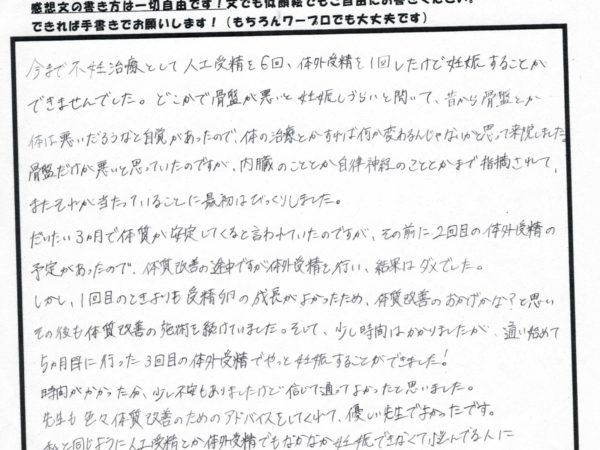 感想文の書き方は一切自由です！文でも似顔絵でもご自由にお書きください。
できれば手書きでお願いします！（もちろんワープロでも大丈夫です）
今まで不妊治療として人工受精を6回、体外受精を1回したけど妊娠することが
できませんでした。どこかで骨盤が悪いと妊娠しづらいと聞いて、昔から骨盤とか
体は悪いだろうなと自覚があったので、体の治療とかすれば何か変わるんじゃないかと思って来院しました。
骨盤だけが悪いと思っていたのですが、内臓のこととか自律神経のこととかまで指摘されて、
またそれが当たっていることに最初はびっくりしました。
だいたい3ヵ月で体質が安定してくると言われていたのですが、その前に2回目の体外受精の
予定があったので、体質改善の途中ですが体外受精を行い、結果はダメでした。
しかし、1回目のときよりも受精卵の成長がよかったため、体質改善のおかげかな？と思い
その後も体質改善の施術を続けていました。そして、少し時間はかかりましたが、通い始めて
5ヵ月目に行った3回目の体外受精でやっと妊娠することができました！
時間がかかった分、少し不安もありましたけど信じて通ってよかったと思いました。
先生も色々体質改善のためのアドバイスをしてくれて、優しい先生でよかったです。
私と同じように人工受精とか体外受精でもなかなか妊娠できなくて悩んでる人に